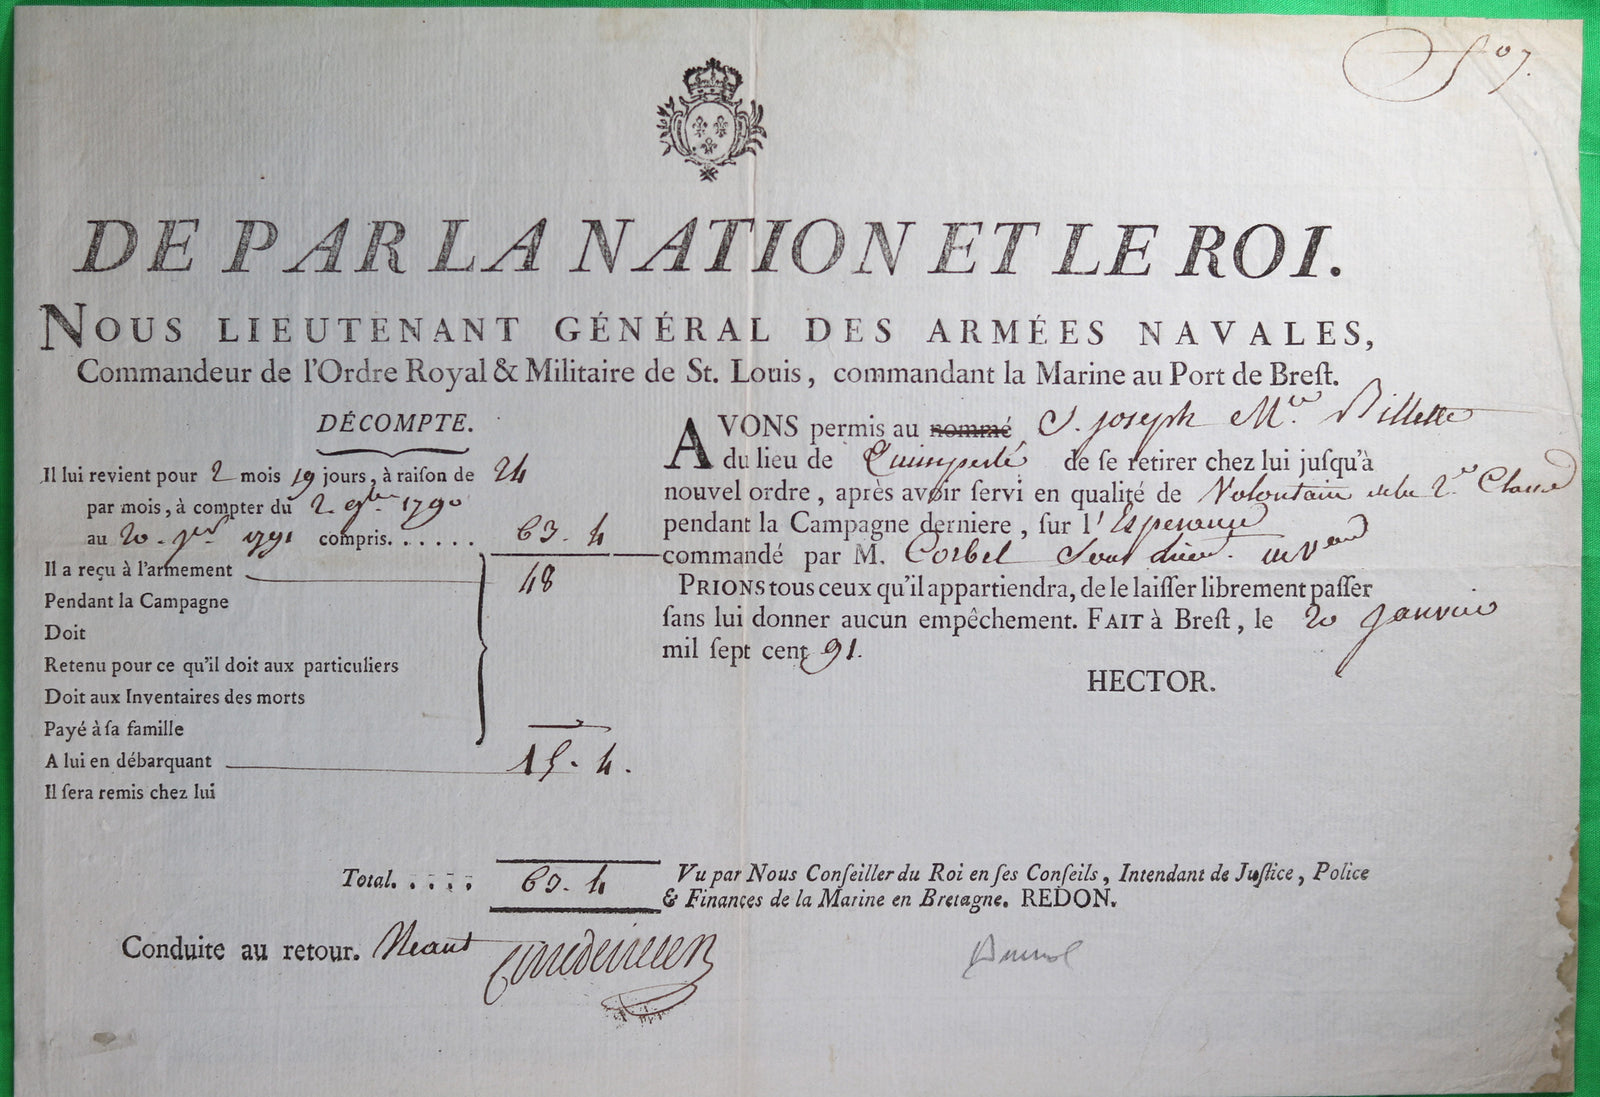 507.
DE PAR LA NATION ET LE ROI.
NOUS LIEUTENANT GÉNÉRAL DES ARMÉES NAVALES,
Commandeur de l'Ordre Royal & Militaire de St. Louis, commandant la Marine au Port de Breſt.
DÉCOMPTE.
Il lui revient pour 2 mois 19 jours, à raiſon de 24
par mois, à compter du 2. 9bre 1790
au 20. jer 1791 compris. . . . . . 63. 4
Il a reçu à l'armement 48
Pendant la Campagne
Doit
Retenu pour ce qu'il doit aux particuliers
Doit aux Inventaires des morts
Payé à ſa famille
A lui en débarquant 15. 4.
Il ſera remis chez lui
Total. . . . . 63. 4
Conduite au retour. Neant
AVONS permis au nommé S. joseph Mie. Billette
du lieu de Quimperlé de ſe retirer chez lui juſqu'à
nouvel ordre, après avoir ſervi en qualité de Volontaire de la 2e Classe
pendant la Campagne derniere, ſur l'Esperance
commandé par M. Corbel Sous Lieut. de Veau
PRIONS tous ceux qu'il appartiendra, de le laiſſer librement paſſer
ſans lui donner aucun empêchement. FAIT à Breſt, le 20 janvier
mil ſept cent 91.
HECTOR.
Vu par Nous Conſeiller du Roi en ſes Conſeils, Intendant de Juſtice, Police
& Finances de la Marine en Bretagne. REDON.